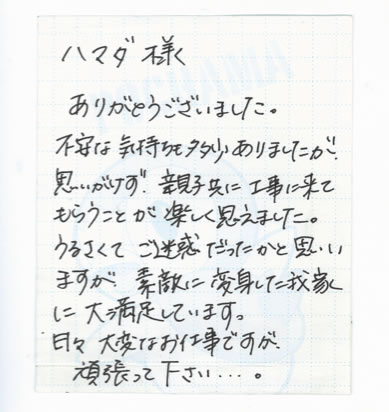 ハマダ様
ありがとうございました。
不安な気持ちも多少ありましたが、
思いがけず、親子共に工事に来て
もらうことが楽しく思えました。
うるさくてご迷惑だったかと思い
ますが、素敵に変身した我家
に大満足しています。
日々大変なお仕事ですが、
頑張って下さい…。